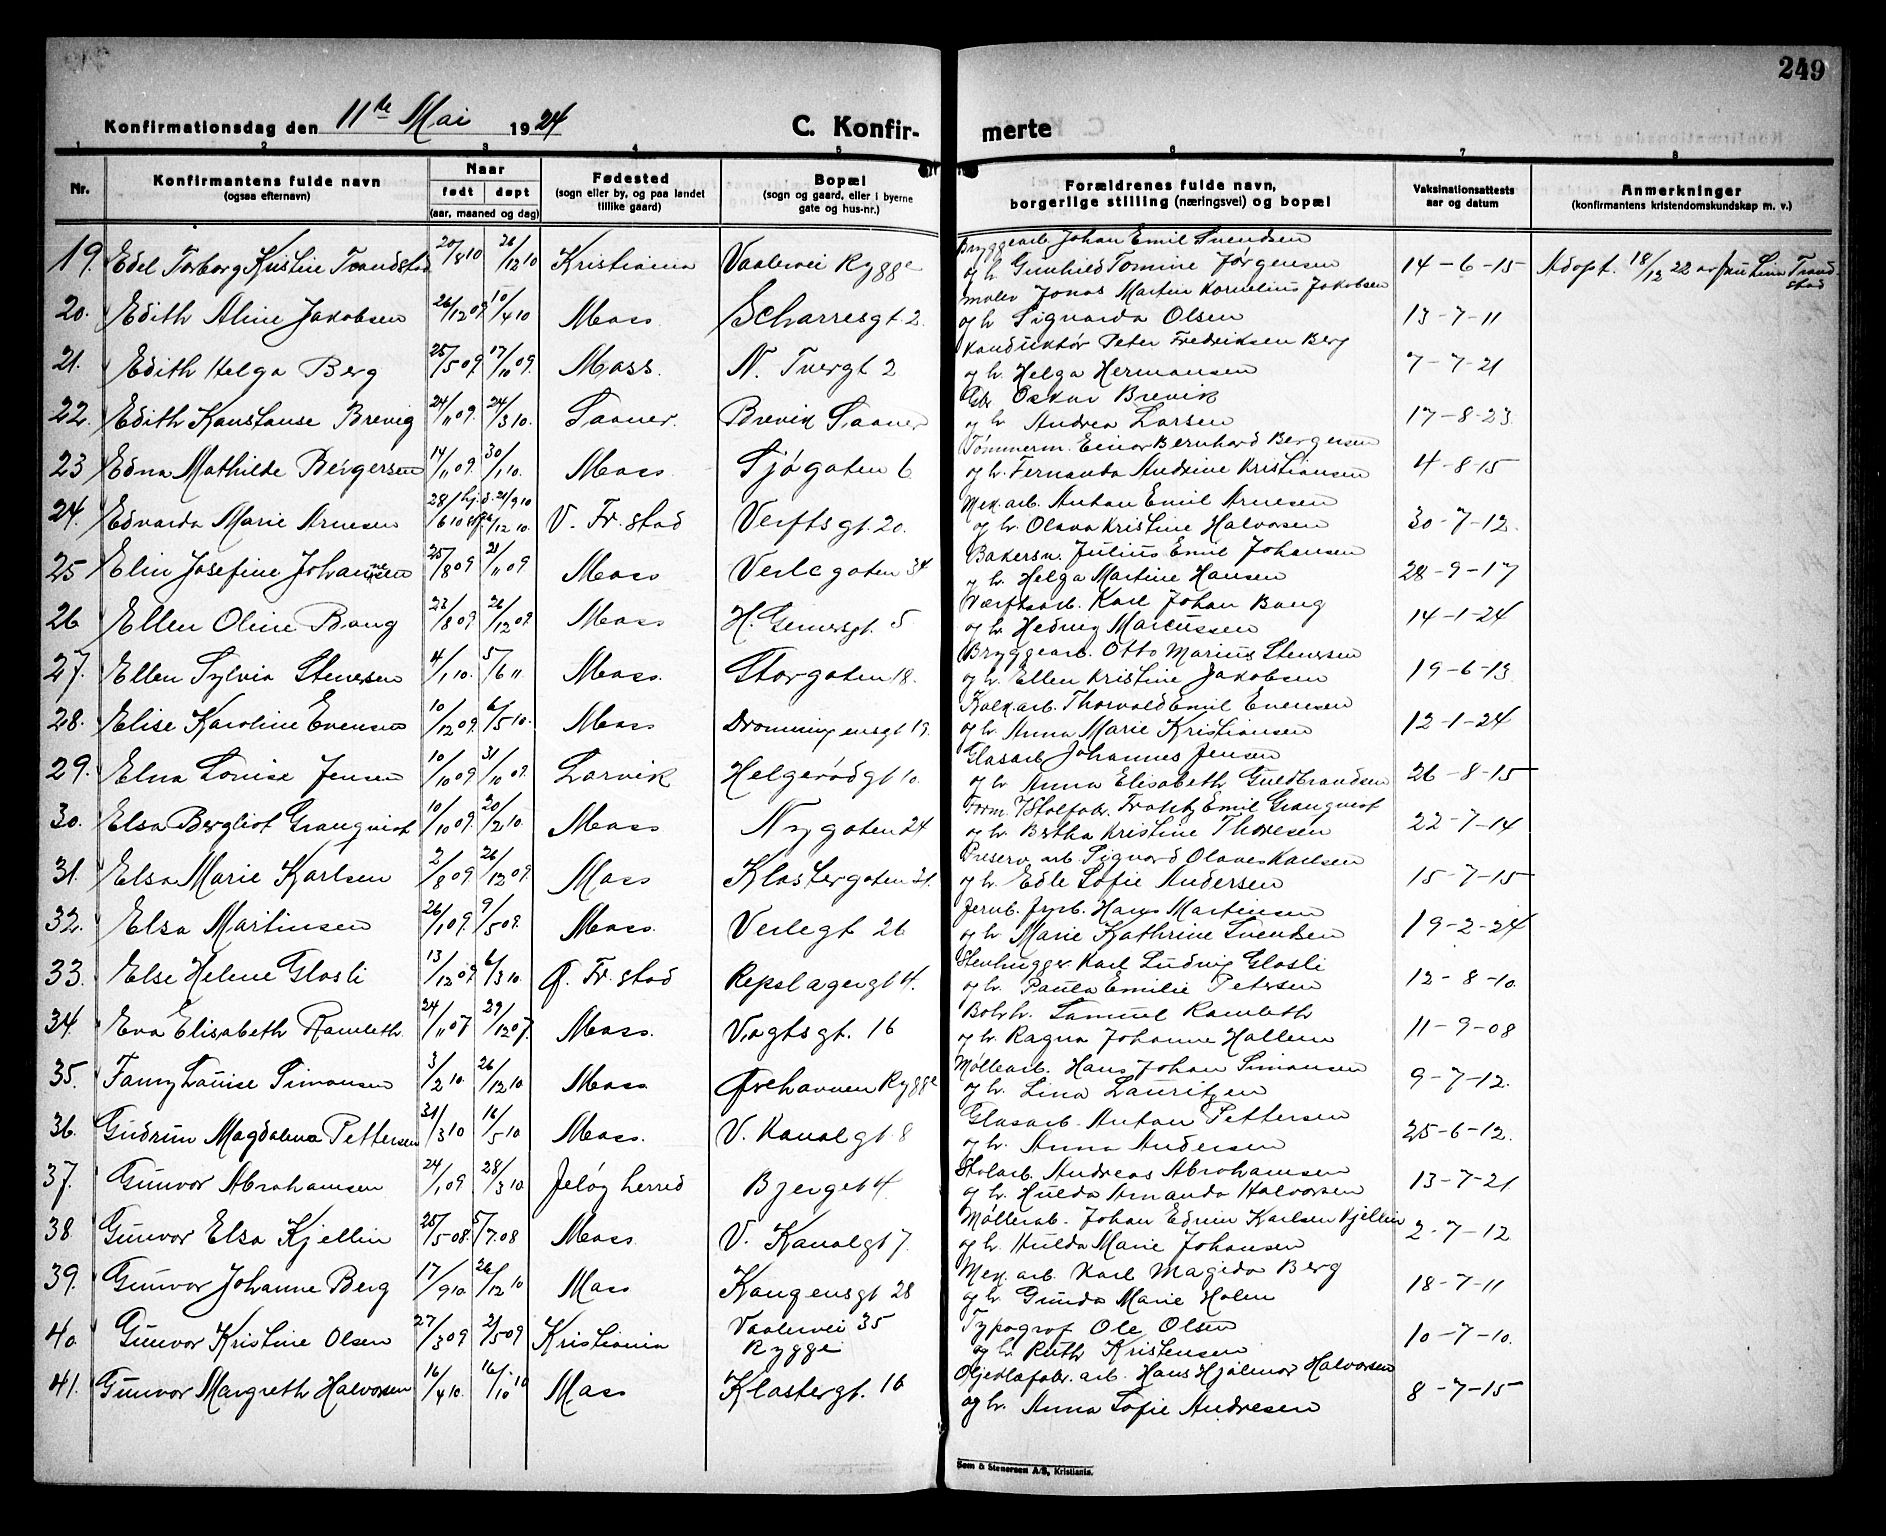 249
Konfirmationsdag den 11te Mai 1924 C. Konfir- merte
1 2 3 4 5 6 7 8
Nr. Konfirmantens fulde navn (ogsaa efternavn) Naar født døpt (aar, maaned og dag) Fødested (sogn eller by, og paa landet tillike gaard) Bopæl (sogn og gaard, eller i byerne gate og hus-nr.) Forældrenes fulde navn, borgerlige stilling (næringsvei) og bopæl Vaksinationsattests aar og datum Anmerkninger (konfirmantens kristendomskundskap m. v.)
19. Edel Torborg Kristine Trandstad 20/8 10 26/12 10 Kristiania Vaalervei Rygge Bryggearb. Johan Emil Svendsen
og h. Gunhild Tomine Jørgensen 14-6-15 Adopt. 18/12 22 av Trandstad
20. Edith Aline Jakobsen 26/12 09 10/4 10 Moss Scharresgt. 2. Maler Jonas Martin Kornelius Jakobsen
og h. Signarda Olsen 13-7-11
21. Edith Helga Berg 25/5 09. 17/10 09. Moss. N. Tvergt 2 Konduktør Peter Fredriksen Berg
og h. Helga Hermansen 7-7-21
22. Edith Konstanse Brevig 24/11 09. 24/3 10. Saaner. Brevik Saaner Gbr Oskar Brevik
og h. Andrea Larsen 17-8-23
23 Edna Mathilde Bergersen 14/11 09. 30/1 10. Moss Sjøgaten 6 Tømmerm. Einar Bernhard Bergersen
og h. Fernanda Andrine Kristiansen 4-8-15
24. Edvarda Marie Arnesen 28/6 10 hj. d. 21/9 10 /12 10. V. Fr.stad Verftsgt. 20. Mek. arb. Anton Emil Arnesen
og h. Olava Kristine Halvorsen 30-7-12.
25 Elin Josefine Johannesen 25/8 09 21/11 09 Moss Verlegaten 34 Bakersv. Julius Emil Johansen
og h. Helga Martine Hansen 28-9-17
26 Ellen Oline Bang 23/8 09. 26/12 09. Moss H. Gernersgt. 5 Værftsarb. Karl Johan Bang
og h. Hedvig Marcussen 14-1-24
27. Ellen Sylvia Stenersen 4/1 10. 5/6 11 Moss. Storgaten 18. Bryggearb. Otto Marius Stenersen
og h. Ellen Kristine Jakobsen 19-6-13
28. Elise Karoline Evensen 10/12 09. 6/5 10. Moss Dronningensgt 19. Kalk. arb. Thorvald Emil Evensen
og h. Anna Marie Kristiansen 12-1-24
29. Elna Louise Jensen 10/10 09 31/10 09. Larvik Helgerødgt 10. Glasarb Johannes Jensen
og h. Anna Elisabeth Guldbrandsen 26-8-15
30. Elsa Bergliot Granqvist 10/10 09. 20/2 10. Moss Nygaten 24 Form. Frantz Emil Granqvist
og h. Bertha Kristine Thoresen 22-7-14
31. Elsa Marie Karlsen 2/8 09 26/12 09. Moss Klostergaten 31. Preserv. arb. Sigvard Olaves Karlsen
og h. Edle Sofie Andersen 15-7-15
32. Elsa Martinsen 26/1 09. 9/5 09. Moss. Verlegt 26 Jernb. fyrb. Hans Martinsen
og h. Marie Kathrine Svendsen 19-2-24
33. Else Helene Glosli 13/12 09. 6/3 10. Ø. Fr.stad Repslagergt 4. Stenhugger Karl Ludvig Glosli
og h. Paula Emilie Petersen 12-8-10.
34. Eva Elisabeth Ramleth 24/11 07 29/12 07. Moss. Vogtsgt. 16 Bokh. Samuel Ramleth
og h. Ragna Johanne Hallem 11-9-08
35. Fanny Louise Simonsen 3/2 10. 26/12 10 Moss Ørehavnen Rygge Møllearb. Hans Johan Simonsen
og h. Lina Lauritzen 9-7-12.
36. Gudrun Magdalena Pettersen 31/3 10 16/5 10 Moss. V. Kanalgt 8 Glasarb. Anton Pettersen
og h. Anna Andersen 25-6-12.
37. Gunvor Abrahamsen 24/1 09 28/3 10 Jeløy herred Bjerget 4. Stolarb. Andreas Abrahamsen
og h. Hulda Amanda Halvorsen 13-7-21
38. Gunvor Elsa Kjellin 25/5 08. 5/7 08 Moss V. Kanalgt 7. Møllerab. Johan Edvin Karlsen Kjellin
og h. Hulda Marie Johansen 2-7-12
39. Gunvor Johanne Berg 17/9 10. 26/12 10 Moss Kongensgt 28 Mek. arb. Karl Magida Berg
og h. Gunda Marie Holm 18-7-11
40. Gunvor Kristine Olsen 27/3 09. 21/5 09 Kristiania Vaalervei 35 Rygge Typograf Ole Olsen
og h. Ruth Kristensen 10-7-10.
41. Gunvor Margreth Halvorsen 16/4 10. 16/10 10 Moss Klostergt. 16 Oljeklæfabr. arb. Hans Hjalmar Halvorsen
og h. Anna Sofie Andresen 8-7-15
Sem & Stenersen A/S, Kristiania.